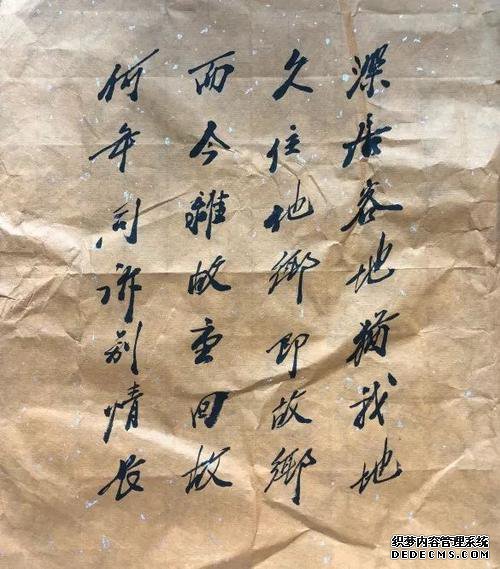 深居客地猶我地
久住他鄉即故鄉
而今離故重回故
何年同訴別情長
织梦内容管理系统
DEDECMS.COM